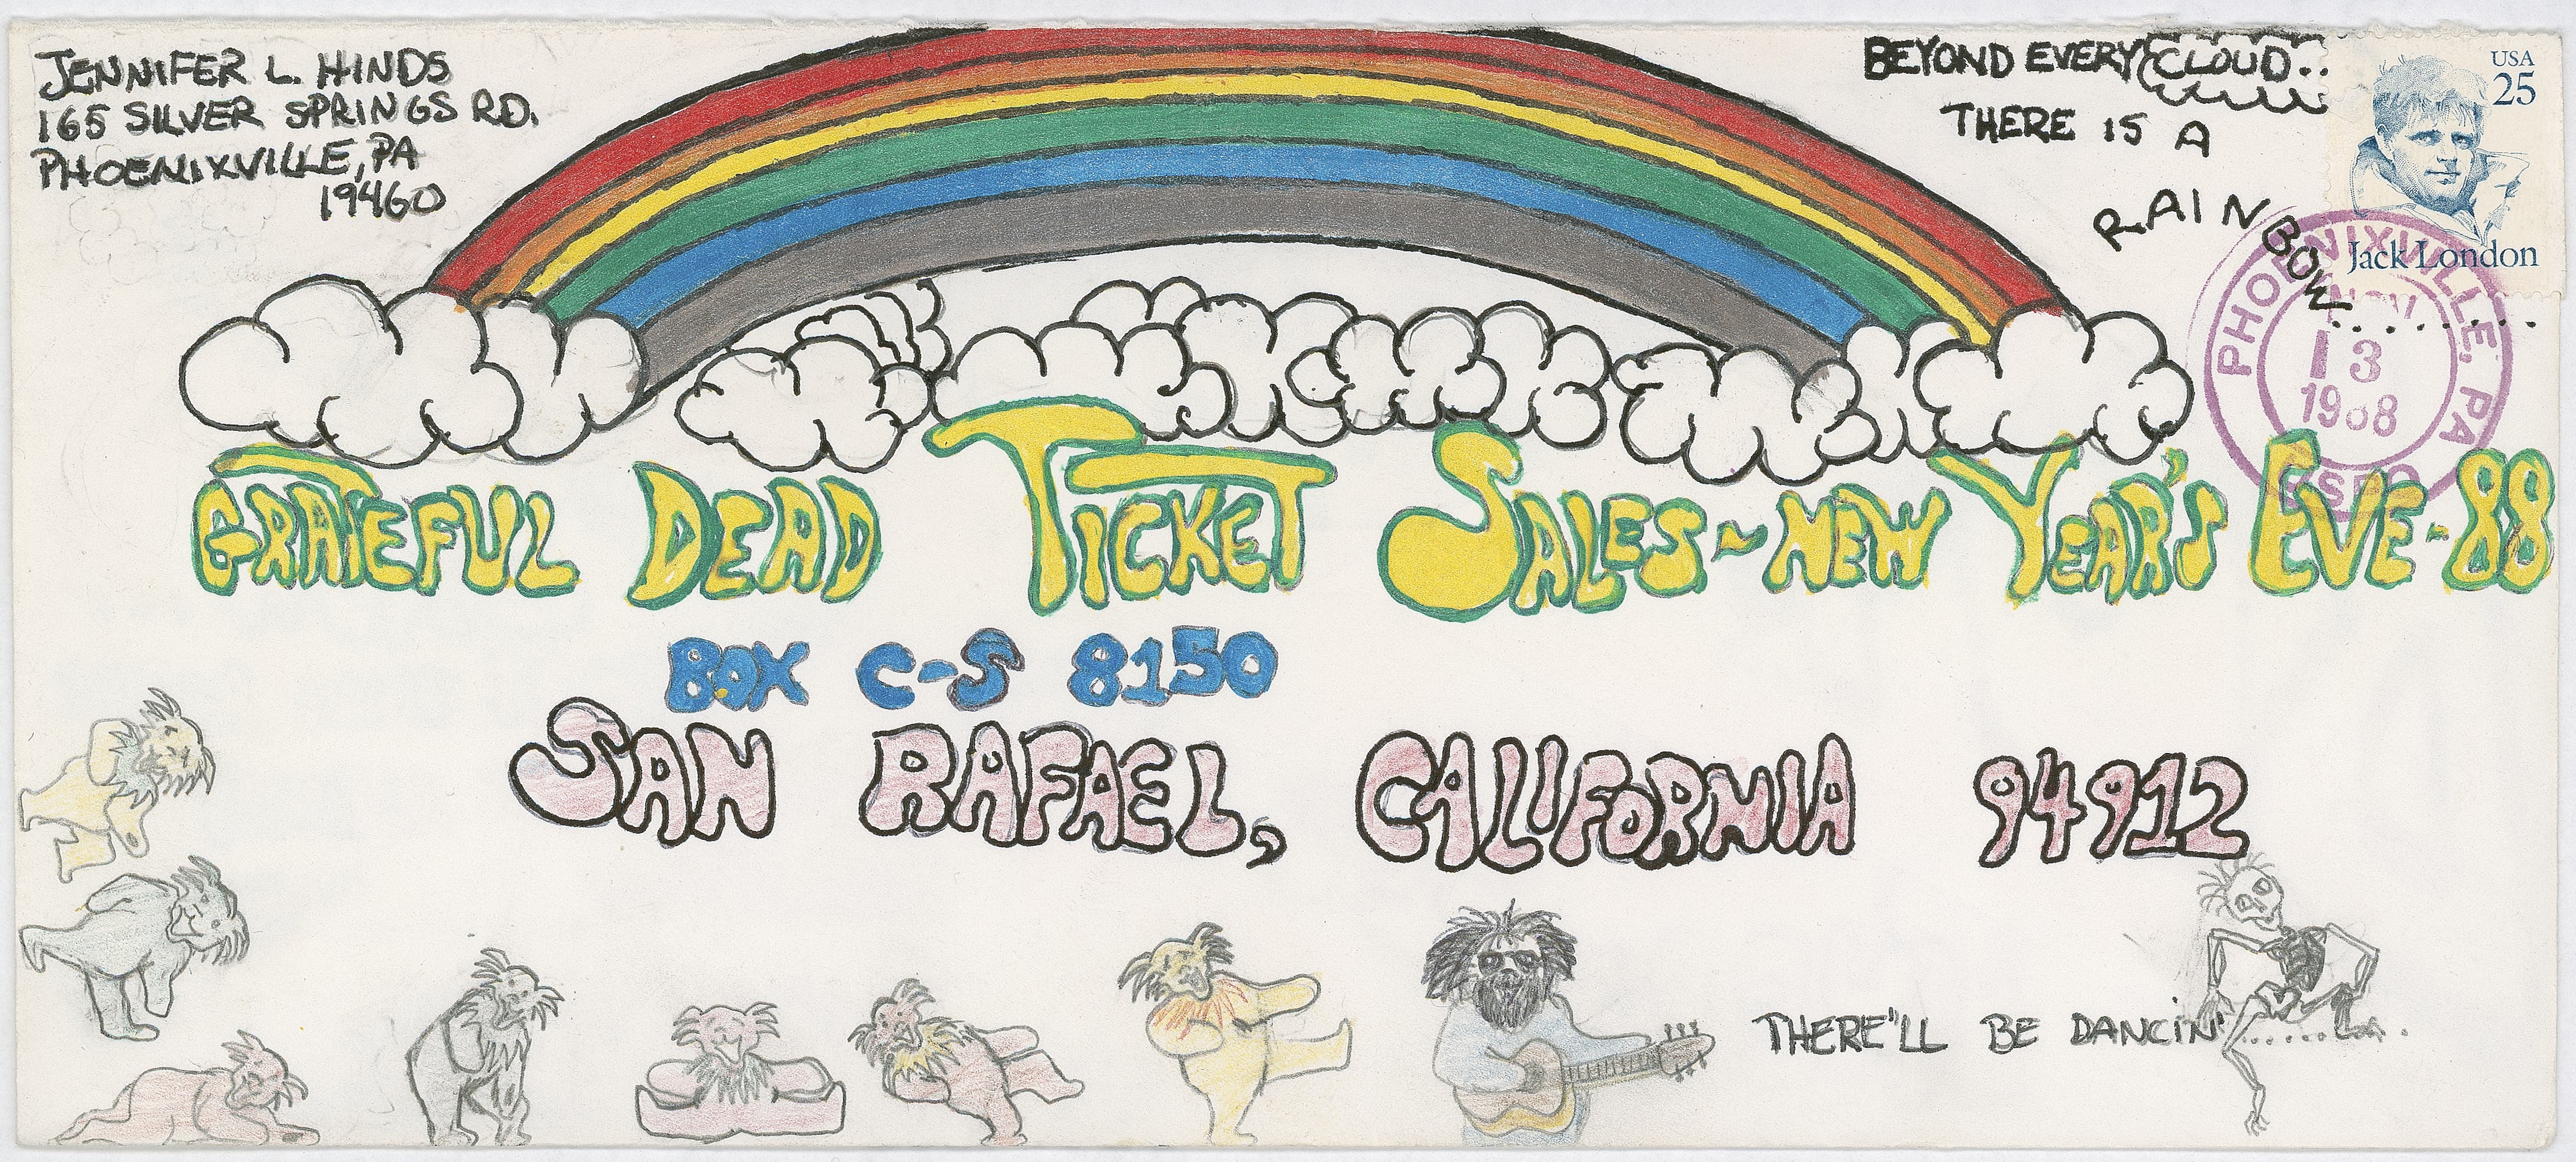 JENNIFER L. HINDS
165 SILVER SPRINGS RD.
PHOENIXVILLE, PA
19460
BEYOND EVERY CLOUD..
THERE IS A
RAINBOW.........
USA
25
Jack London
PHOENIXVILLE, PA
NOV
13
1988
USPO
GRATEFUL DEAD TICKET SALES~NEW YEAR'S EVE-88
BOX C-S 8150
SAN RAFAEL, CALIFORNIA 94912
THERE'LL BE DANCIN'..........